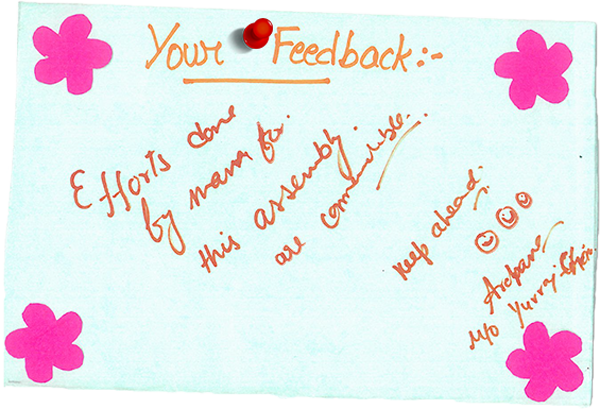 Your Feedback:-
Efforts done
by mam for
this assembly.
are commendible.
keep ahead.
Archana
M/O Yuvraj